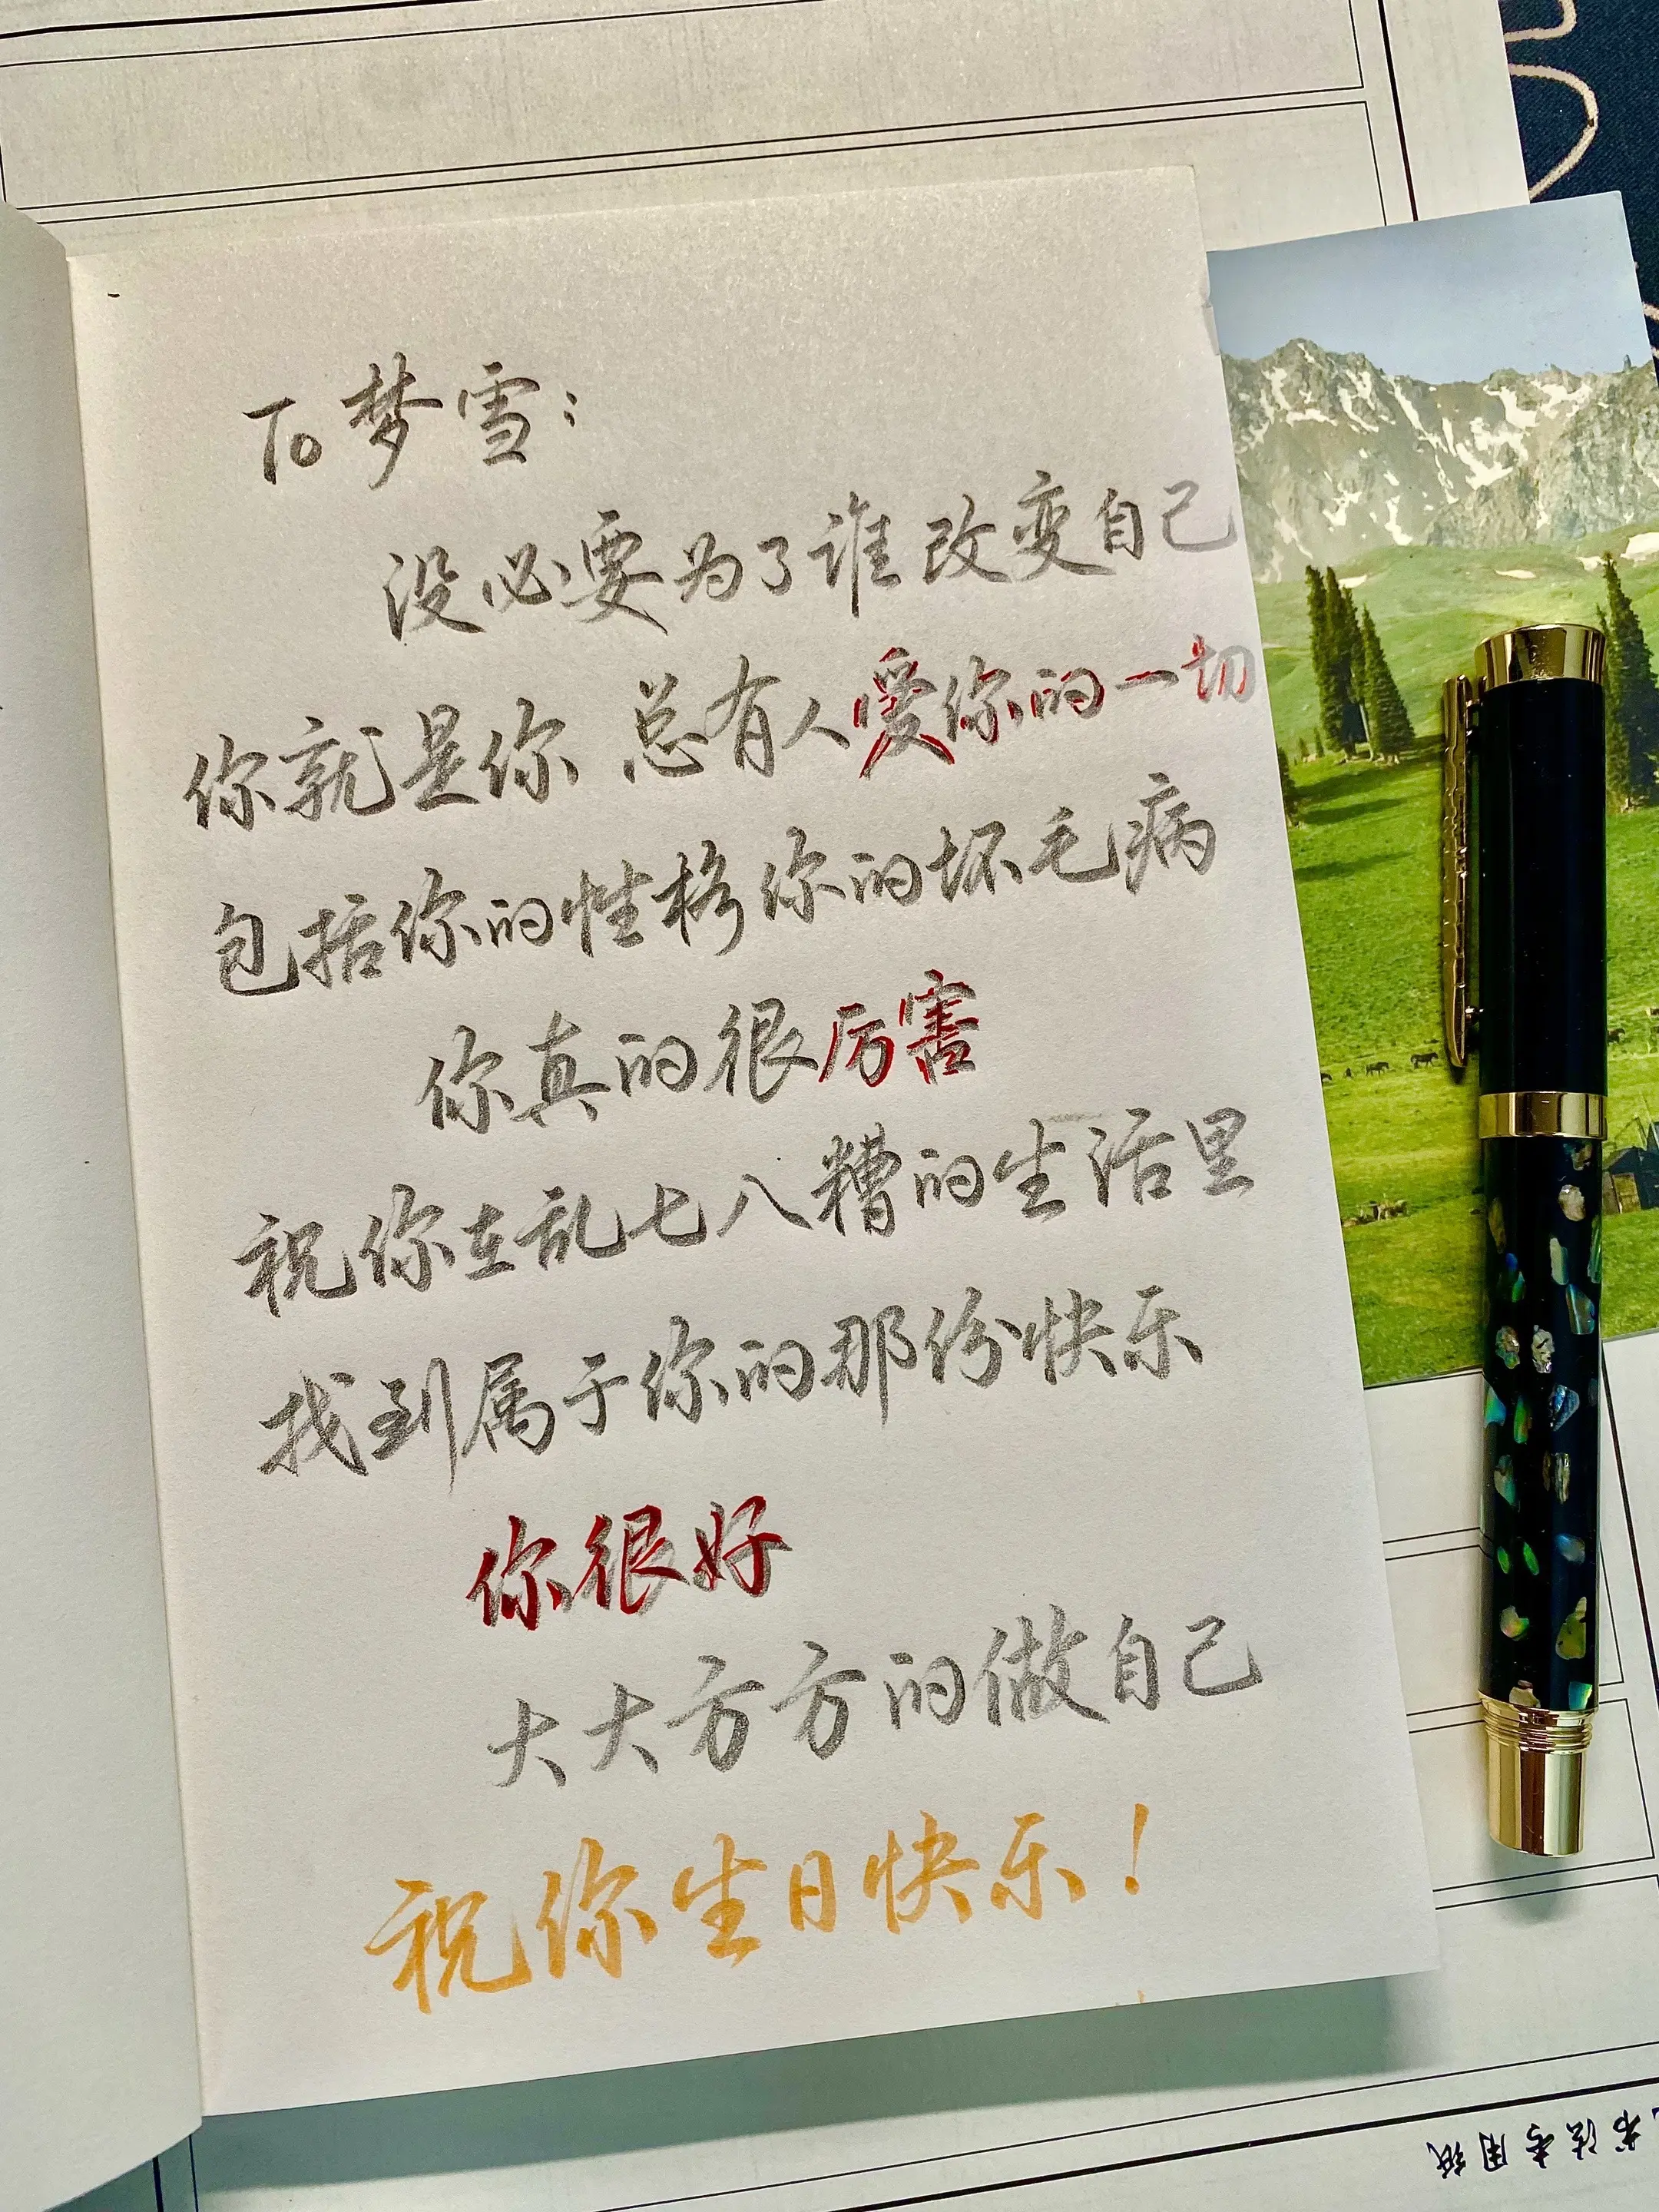 To 梦雪：
没必要为了谁改变自己
你就是你 总有人爱你的一切
包括你的性格你的坏毛病
你真的很厉害
祝你在乱七八糟的生活里
找到属于你的那份快乐
你很好
大大方方的做自己
祝你生日快乐！
书法专用纸